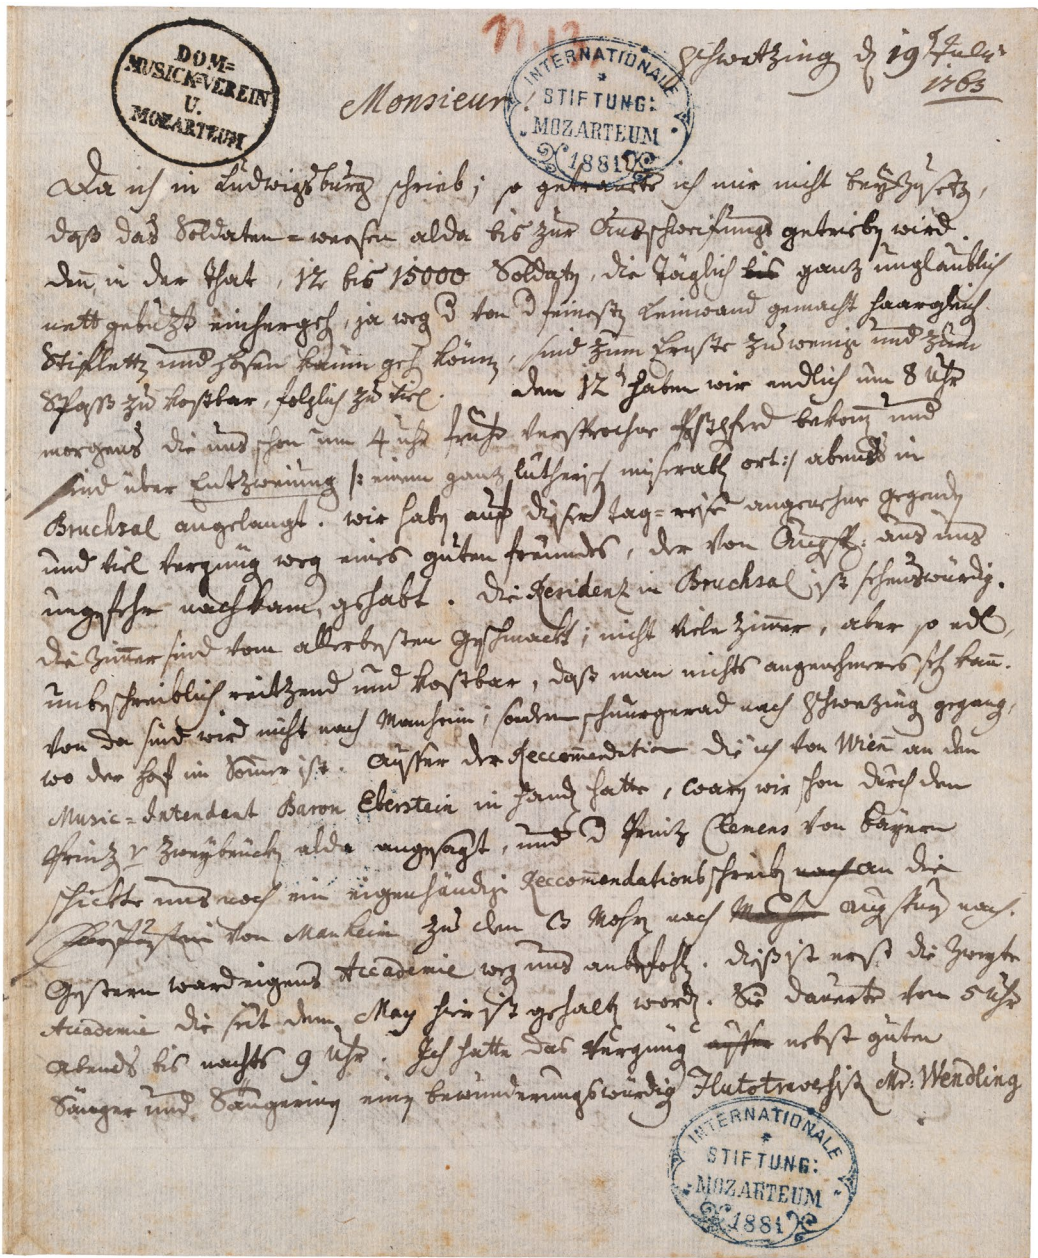 N. 13
Schwetzing d 19t Julii
1763
DOM=
MUSICK=VEREIN
U.
MOZARTEUM
INTERNATIONALE
*
STIFTUNG:
MOZARTEUM
1881
Monsieur!
Da ich in Ludwigsburg schrieb; so getrauete ich mir nicht beyzusetzen,
daß das Soldaten=weesen alda bis zur Ausschweifung getrieben wird.
denn in der That, 12 bis 15000 Soldaten, die Täglich bis ganz unglaublich
nett gebutzt einhergehen, ja wegen d von d feinesten Leinwand gemacht haargleich
Stiffletten und Hosen kaum gehen können, sind zum Ernste zu wenig und zum
Spaß zu kostbar, folglich zu viel. den 12t haben wir endlich um 8 Uhr
morgens die uns schon um 4 uhr frühe versprochene Postpferd bekommen und
sind über Entzweiung /: einem ganz lutherisch miserablen ort :/ abends in
Bruchsal angelangt. wir haben auf dieser tag=reise angenehme gegenden
und viel vergnügen wegen eines guten freundes, der von Augsp: aus uns
ungefehr nachkam, gehabt. Die Residenz in Bruchsal ist sehenswürdig.
die Zimmer sind vom allerbesten Geschmackt; nicht viele Zimmer, aber so edl,
unbeschreiblich reitzend und kostbar, daß man nichts angenehmeres sehen kann.
von da sind wird nicht nach Manheim; sondern schnurgerad nach Schwezing gegangen,
wo der Hof im Sommer ist. Ausser der Reccommendation die ich von Wienn an den
Music=Intendent Baron Eberstein in Handen hatte, waren wir schon durch den
Prinz v Zweybrücken alda angesagt, und d Prinz Clemens von Bayern
schickte uns noch ein eigenhändiges Reccommendationsschreiben nach an die
Churfürstin von Manheim zu den 3 Mohren nach Augspurg nach.
Gestern ward eigens Accademie wegen uns anbefohlen. dieß ist erst die Zweyte
Accademie die seit dem May hier ist gehalten worden. Sie dauerte von 5 Uhr
abends bis nachts 9 Uhr. Ich hatte das Vergnügen ausser nebst guten
Sänger und Sängerinen einen bewunderungswürdigen Flutotraversisten Mr: Wendling
INTERNATIONALE
*
STIFTUNG:
MOZARTEUM
1881